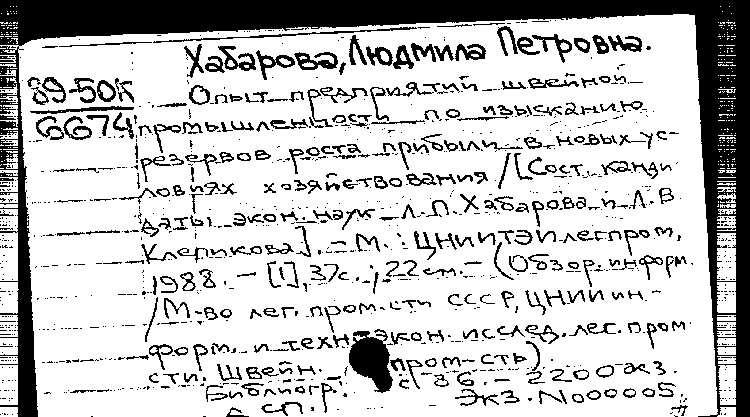 Хабарова, Людмила Петровна.
89-50к
6674
Опыт предприятий швейной
промышленности по изысканию
резервов роста прибыли в новых ус-
ловиях хозяйствования / [Сост. канди
даты экон. наук Л. П. Хабарова и Л. В
Клерикова]. - М. : ЦНИИТЭИлегпром,
1988. - [1], 37с. ; 22 см. - (Обзор. информ.
/ М-во лег. пром-сти СССР, ЦНИИ ин-
форм. и техн.-экон. исслед. лег. пром
сти. Швейн. пром-сть).
Библиогр.: с. 36. - 2200 экз.
Экз. N000005.